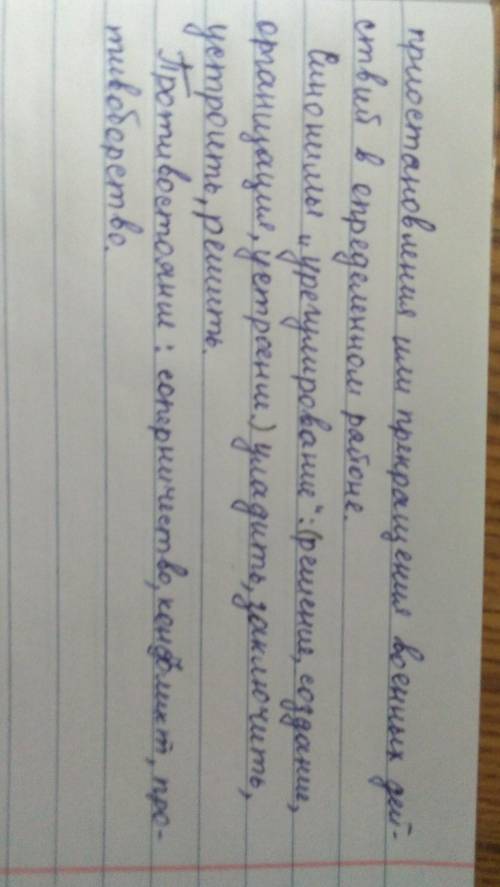 приостановления или прекращения военных дей-
ствий в определенном районе.
Синонимы „урегулирование“: (решение, создание,
организация, устроение) уладить, заключить,
устроить, решить.
Противостояние: соперничество, конфликт, про-
тивоборство.